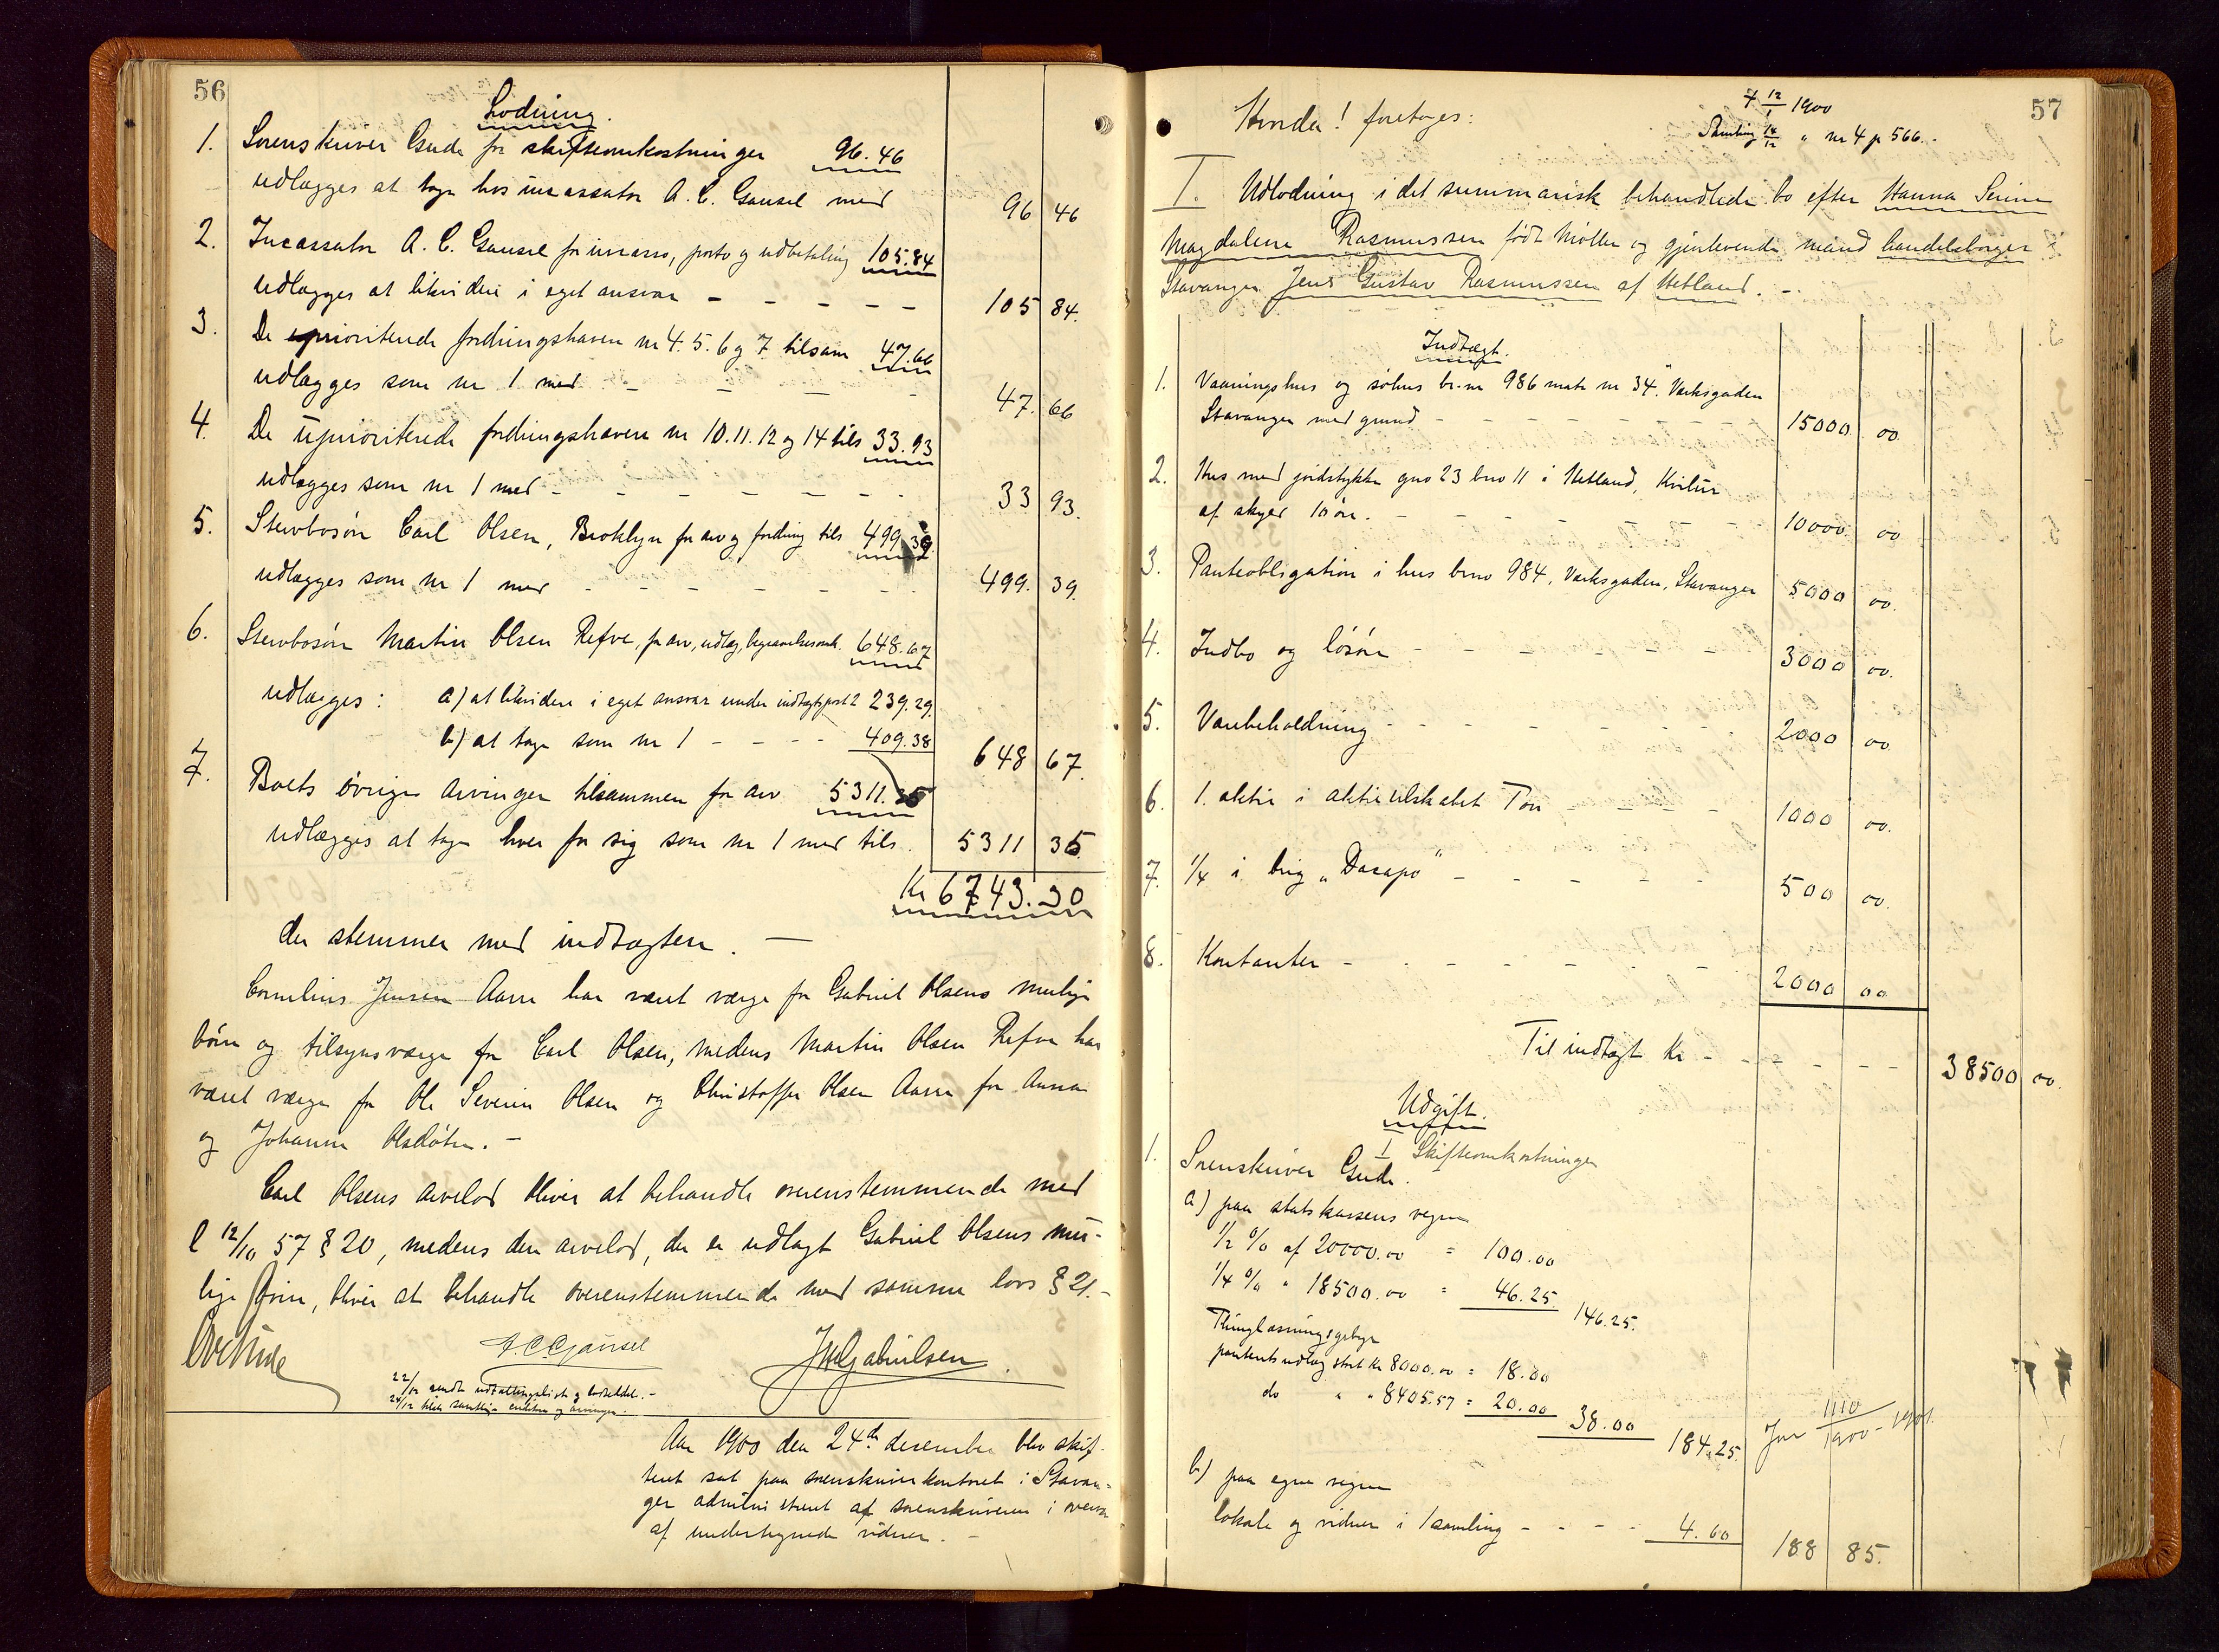 56
Lodning.
1. Sorenskriver Gude for skifteomkostninger 96.46
udlægges at tage hos incassator A. C. Gausel med 96 46
2. Incassator A. C. Gausel for incasso, porto og udbetaling 105.84
udlægges at likvidere i eget ansvar - - - - - 105 84.
3. De uprioriterede fordringshavere nr 4. 5. 6 og 7 tilsam 47.66
udlægges som nr 1 med - - - - 47. 66
4. De uprioriterede fordringshavere nr 10. 11. 12 og 14 tils 33.93
udlægges som nr 1 med - - - - - - - 33 93.
5. Stervbosøn Carl Olsen, Broklyn for arv og fordring tils 499.39
udlægges som nr 1 med - - - - - - 499. 39.
6. Stervbosøn Martin Olsen Refve, for arv, udlæg, begravelsesomk. 648.67
udlægges: a) at likvidere i eget ansvar under indtægtspost 2 239.29.
b) at tage som nr 1 - - - - 409.38 648 67.
7. Boets øvrige arvinger tilsammen for arv 5311.35
udlægges at tage hver for sig som nr 1 med tils. 5311 35.
Kr 6743.30
der stemmer med indtægten. —
Cornelius Jensen Aarre har været værge for Gabriel Olsens mulige
børn og tilsynsværge for Carl Olsen, medens Martin Olsen Refve har
været værge for Ole Severin Olsen og Christoffer Olsen Aarre for Anna
og Johanne Olsdøtre. -
Carl Olsens arvelod bliver at behandle overenstemmende med
l 12/10 57 § 20, medens den arvelod, der er udlagt Gabriel Olsens mu-
lige børn, bliver at behandle overenstemmende med samme lovs § 21.-
Ove Gude A. C. Gausel J M Gabrielsen.
22/12 sendt udbetalingslist og lodseddel. -
24/12 tilst. samtlige creditorer og arvinger. -
Aar 1900 den 24de desember blev skif-
teret sat paa sorenskriverkontoret i Stavan-
ger administreret af sorenskriveren i overvær
af undertegnede vidner. -
57
† 12/1 1900
Samling 14/12 " nr 4 p 566. -
Hvorda! foretoges:
I. Udlodning i det summarisk behandlede bo efter Hanna Serine
Magdalene Rasmussen født Møller og gjenlevende mand handelsborger i
Stavanger Jens Gustav Rasmussen af Hetland. -
Indtægt.
1. Vaaningshus og søhus br. nr 986 matr nr 34. Værksgaden
Stavanger med grund - - - - - - - 15000. 00.
2. Hus med jordstykke gno 23 bno 11 i Hetland,
af skyld 10 øre. - - - - - - - 10000. 00
3. Panteobligation i hus brno 984, Værksgaden, Stavanger 5000 00.
4. Indbo og løsøre - - - - - - 3000 00.
5. Varebeholdning - - - - - - 2000 00.
6. 1. aktie i aktieselskabet Tou - - - - 1000 00.
7. 1/4 i brig „Dasapo" - - - - - 500 00.
8. Kontanter - - - - - - - 2000 00
Til indtægt Kr - - - - - - 38500 00.
Udgift.
I Skifteomkostninger
1. Sorenskriver Gude.
a) paa statskassens vegne
1/2 % af 20000.00 = 100.00
1/4 % " 18500.00 = 46.25. 146.25.
Thinglæsningsgebyr
panterets udlæg stort Kr 8000.00 = 18.00
do " " 8405.57 = 20.00 38.00 184.25.
Jnr 1110/1900-1901.
b) paa egne vegne
lokale og vidner i 1 samling - - - - 4.60 188 85.